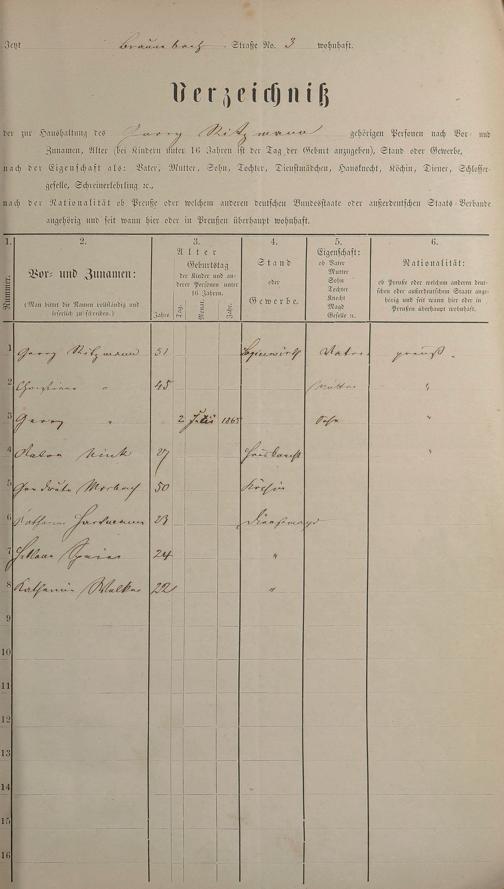 Jetzt Braunbach Straße No. 3 wohnhaft.
Verzeichniß
der zur Haushaltung des Georg Ritzmann gehörigen Personen nach Vor- und
Zunamen, Alter (bei Kindern unter 16 Jahren ist der Tag der Geburt anzugeben), Stand oder Gewerbe,
nach der Eigenschaft als: Vater, Mutter, Sohn, Tochter, Dienstmädchen, Hausknecht, Köchin, Diener, Schlosser-
geselle, Schreinerlehrling ꝛc.,
nach der Nationalität ob Preuße oder welchem anderen deutschen Bundesstaate oder außerdeutschen Staats-Verbande
angehörig und seit wann hier oder in Preußen überhaupt wohnhaft.
1. 2. 3. 4. 5. 6.
Nummer.
Vor- und Zunamen:
(Man bittet die Namen vollständig und
leserlich zu schreiben.)
Alter
Geburtstag
der Kinder und an-
derer Personen unter
16 Jahren.
Jahre Tag. Monat. Jahr.
Stand
oder
Gewerbe.
Eigenschaft:
ob Vater
Mutter
Sohn
Tochter
Knecht
Magd
Geselle u.
Nationalität:
ob Preuße oder welchem anderen deut-
schen oder außerdeutschen Staate ange-
hörig und seit wann hier oder in
Preußen überhaupt wohnhaft.
1 Georg Ritzmann 51 Vater preuß.
2 Christine " 45 Mutter "
3 Georg " 2 Juli 1865 Sohn "
4 27 Hausknecht "
5 50 Köchin
6 Katharina Hartmann 23 Dienstmagd
7 24 "
8 Katharine 22 "
9
10
11
12
13
14
15
16